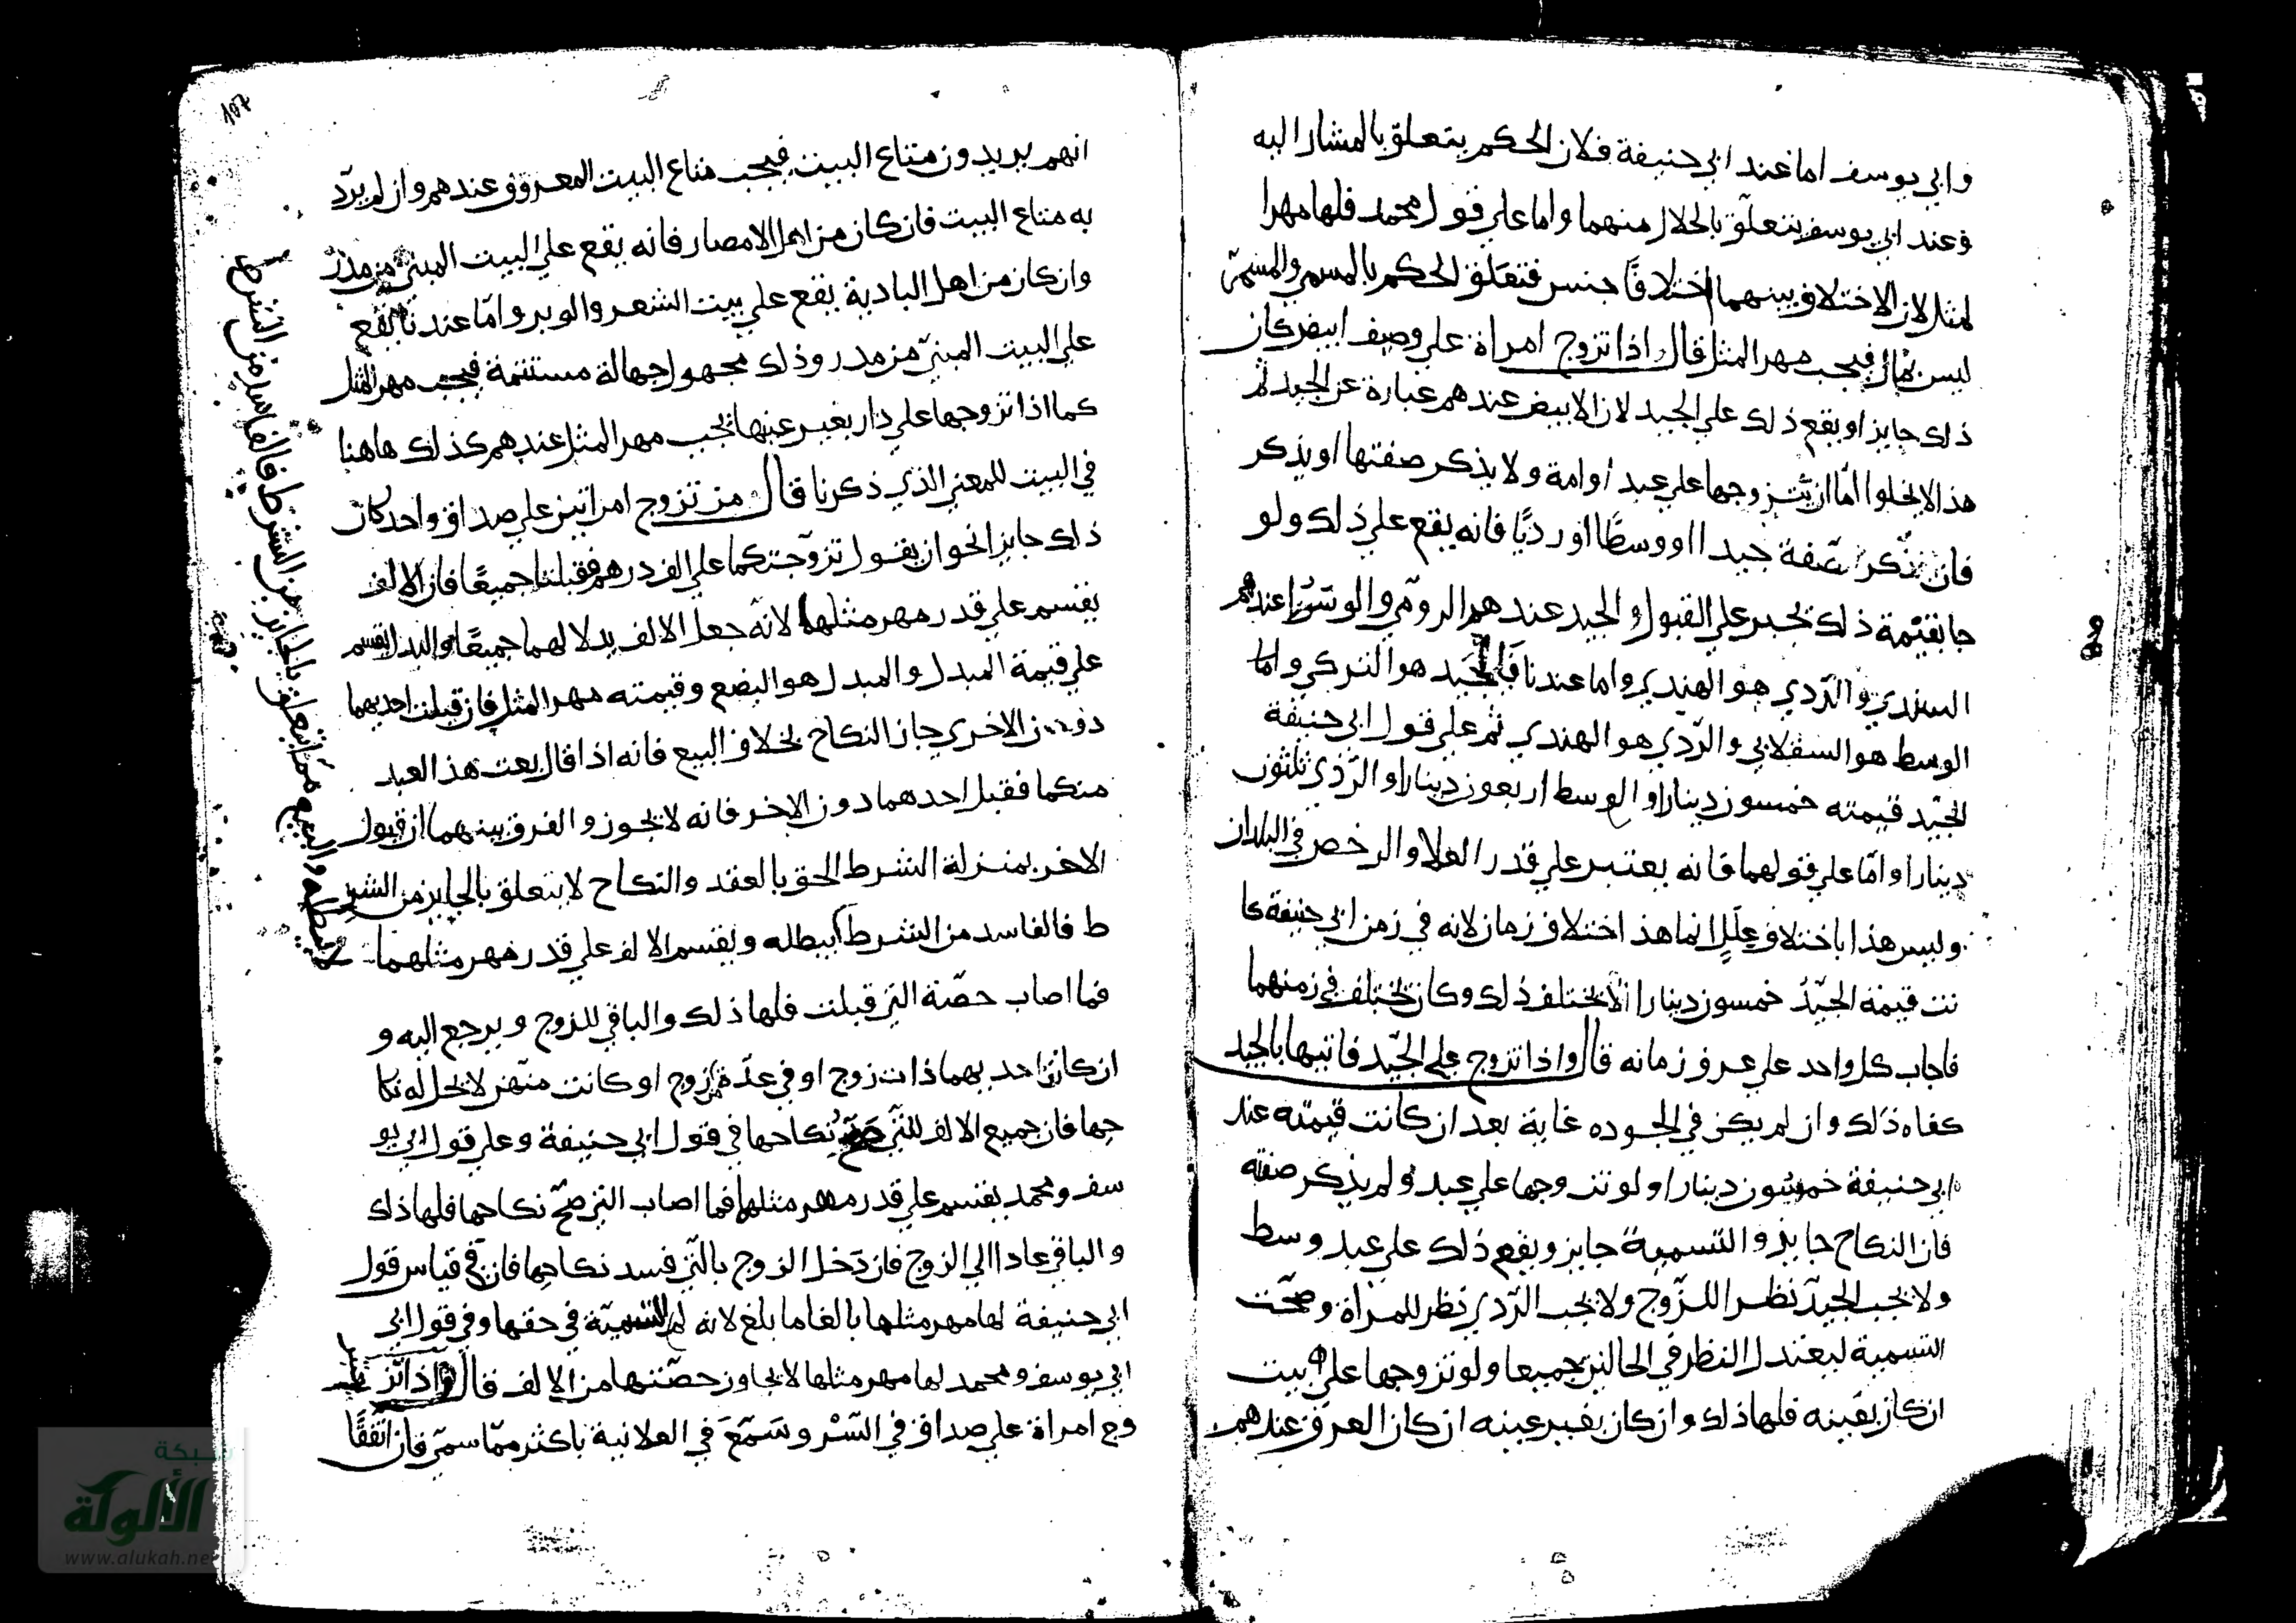 وابي يوسف اما عند ابي حنيفة فلان الحكم يتعلق بالمشار اليه
وعند ابي يوسف يتعلق بالحلال منهما واما علي قول محمد فلها مهرا
لمثل لان الاختلاف بينهما اختلافا جنس فتعلق الحكم بالمسمي والمسمي
ليس بمال فيجب مهر المثل قال اذا تزوج امراة علي وصيف ابيض كان
ذلك جايز او يقع ذلك علي الجيد لان الابيض عندهم عبارة عن الجيد ثم
هذا لايخلوا اما ان يتزوجها علي عبد او امة ولا يذكر صفتها او يذكر
فان ذكر صفة جيدا او وسطا او رديا فانه يقع علي ذلك ولو
جا بقيمة ذلك تجبر علي القبول والجيد عندهم الرومي والوسط عندهم
السندي والردي هو الهندي واما عندنا فالجيد هو التركي واما
الوسط هو السقلابي والردي هو الهندي ثم علي قول ابي حنيفة
الجيد قيمته خمسون دينارا والوسط اربعون دينارا والردي ثلثون
دينارا واما علي قولهما فانه يعتبر علي قدر الغلا والرخص في البلدان
وليس هذا باختلاف علل انما هذا اختلاف زمان لانه في زمن ابي حنيفة كا
نت قيمة الجيد خمسون دينارا لايختلف ذلك وكان يختلف في زمنهما
فاجاب كل واحد علي عرف زمانه قال واذا تزوج علي الجيد فاتيها بالجيد
كفاه ذلك وان لم يكن في الجوده غاية بعد ان كانت قيمته عند
ابي حنيفة خمسون دينارا ولو تزوجها علي عبد ولم يذكر صفته
فان النكاح جايز والتسمية جايز ويقع ذلك علي عبد وسط
ولا يجب الجيد نظرا للزوج ولا يجب الردي نظر للمراة وصحت
التسمية ليعتدل النظر في الحالين جميعا ولو تزوجها علي بيت
ان كان بعينه فلها ذلك وان كان بغير عينه ان كان العرف عندهم
107
انهم يريدون متاع البيت فيجب متاع البيت المعروف عندهم وان لم يرد
به متاع البيت فان كان من اهل الامصار فانه يقع علي البيت المبني من مدر
وان كان من اهل البادية يقع علي بيت الشعر والوبر واما عندنا يقع
علي البيت المبني من مدر وذلك مجهول جهالة مستتمة فيجب مهر المثل
كما اذا تزوجها علي دار بغير عينها يجب مهر المثل عندهم كذلك هاهنا
في البيت للمعني الذي ذكرنا قال من تزوج امراتين علي صداق واحد كان
ذلك جايز انحو ان يقول تزوجتكما علي الف درهم فقبلتا جميعا فان الالف
يقسم علي قدر مهر مثلهما لانه جعل الالف بدلا لهما جميعا والبدل يقسم
علي قيمة المبدل والمبدل هو البضع وقيمته مهر المثل فان قبلت احديهما
دون الاخري جاز النكاح بخلاف البيع فانه اذا قال بعت هذا العبد
منكما فقبل احدهما دون الاخر فانه لا يجوز والفرق بينهما ان قبول
الاخر بمنزلة الشرط الحق بالعقد والنكاح لا يتعلق بالجايز من الشر
ط فالفاسد من الشرط لايبطله ويقسم الالف علي قدر مهر مثلهما
فما اصاب حصة التي قبلت فلها ذلك والباقي للزوج ويرجع اليه و
ان كان احديهما ذات زوج او في عدة زوج او كانت متهن لا يحل له نكا
حها فان جميع الالف للتي صح نكاحها في قول ابي حنيفة وعلي قول ابي يو
سف ومحمد يقسم علي قدر مهر مثلهما فما اصاب التي صح نكاحها فلها ذلك
والباقي عادا الي الزوج فان دخل الزوج بالتي فسد نكاحها فان في قياس قول
ابي حنيفة لها مهر مثلها بالغا ما بلغ لانه لم التسمية في حقها وفي قول ابي
ابي يوسف ومحمد لها مهر مثلها لا يجاوز حصتها من الالف قال واذا تز
وج امراة علي صداق في السر وسمع في العلانية باكثر مما سمي فان اتفقا
يبطله والبيع مما يتعلق بالجايز من الشرط فالفاسد من الشرط
شبكة
الألوكة
www.alukah.ne